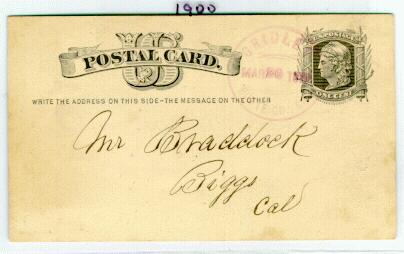 1900
US
POSTAL CARD.
U.S. POSTAGE
GRIDLE
MAR
WRITE THE ADDRESS ON THIS SIDE-THE MESSAGE ON THE OTHER
ONE CENT
Mr Braddock
Biggs
Cal